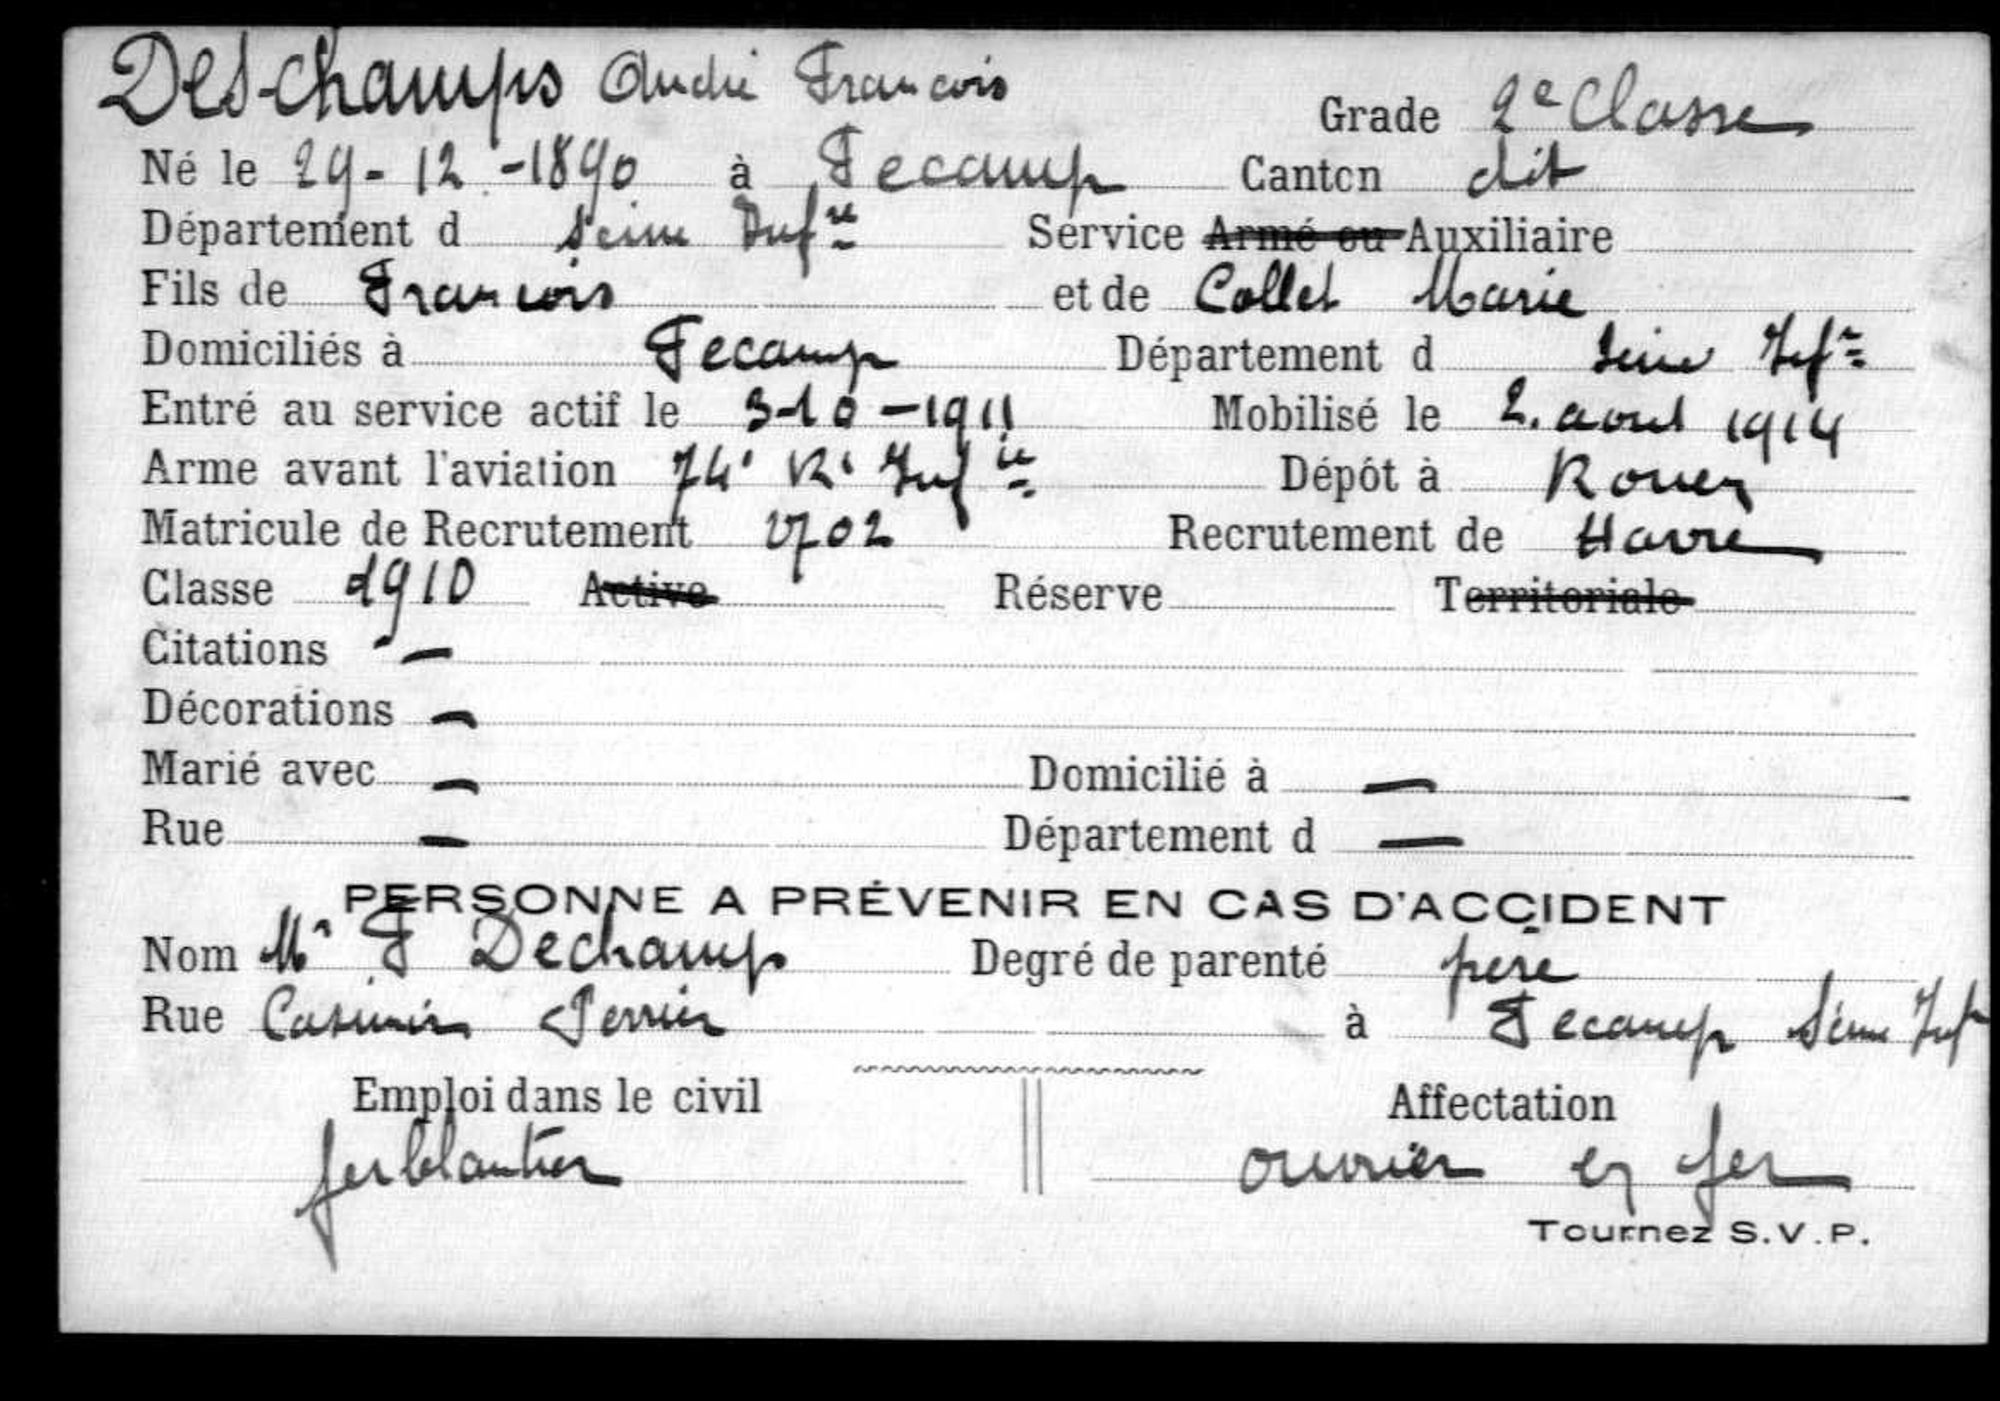 Deschamps André Francois Grade 2e Classe
Né le 29-12-1890 à Fecamp Canton dit
Département d Seine Infre Service Armé ou Auxiliaire
Fils de Francois et de Collet Marie
Domiciliés à Fecamp Département d Seine Infre
Entré au service actif le 3-10-1911 Mobilisé le 2. aout 1914
Arme avant l'aviation 74e Rt Infie Dépôt à Rouen
Matricule de Recrutement 2702 Recrutement de Havre
Classe 1910 Active Réserve Territoriale
Citations —
Décorations —
Marié avec — Domicilié à —
Rue — Département d —
PERSONNE A PRÉVENIR EN CAS D'ACCIDENT
Nom Mr F Dechamps Degré de parenté père
Rue Casimir Perrier à Fecamp Seine Infre
Emploi dans le civil Affectation
ferblantier ouvrier en fer
Tournez S.V.P.